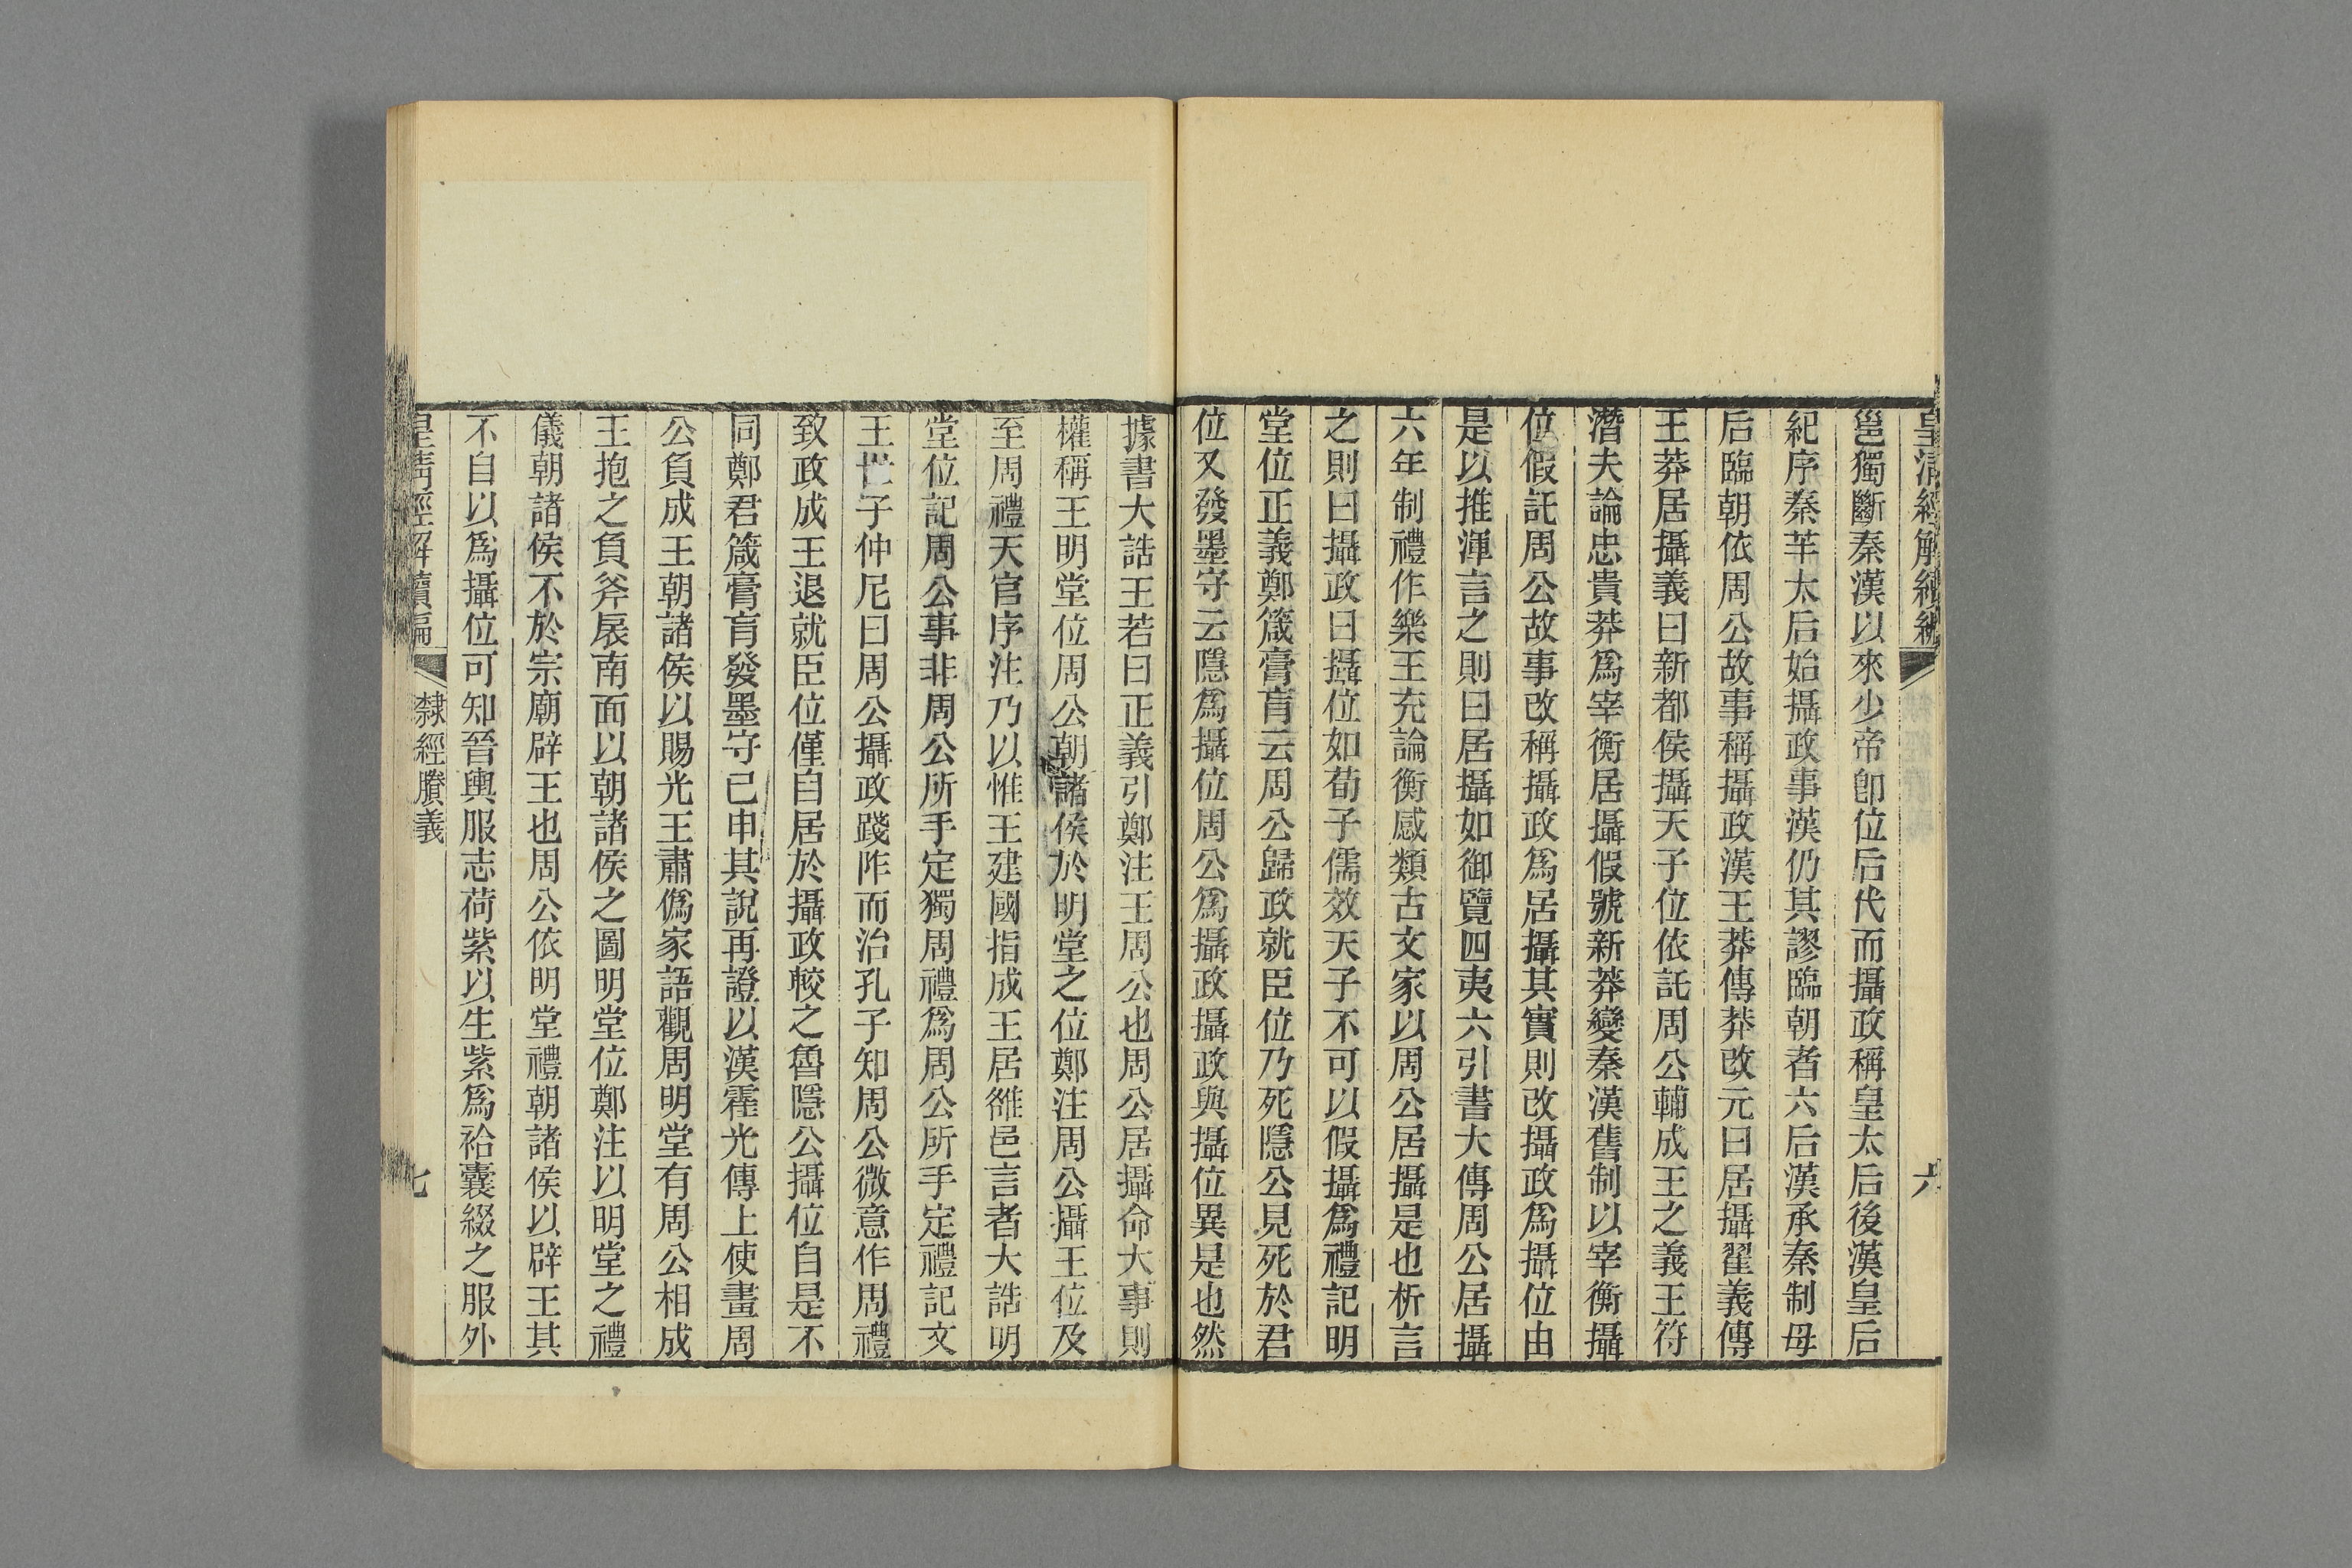 皇清經解續編
六
邕獨斷秦漢以來少帝卽位后代而攝政稱皇太后後漢皇后
紀序秦芈太后始攝政事漢仍其謬臨朝者六后漢承秦制母
后臨朝依周公故事稱攝政漢王莽傳莽改元曰居攝翟義傳
王莽居攝義曰新都侯攝天子位依託周公輔成王之義王符
潛夫論忠貴莽爲宰衡居攝假號新莽變秦漢舊制以宰衡攝
位假託周公故事改稱攝政爲居攝其實則改攝政爲攝位由
是以推渾言之則曰居攝如御覽四夷六引書大傳周公居攝
六年制禮作樂王充論衡感類古文家以周公居攝是也析言
之則曰攝政曰攝位如荀子儒效天子不可以假攝爲禮記明
堂位正義鄭箴膏肓云周公歸政就臣位乃死隱公見死於君
位又發墨守云隱爲攝位周公爲攝政攝政與攝位異是也然
據書大誥王若曰正義引鄭注王周公也周公居攝命大事則
權稱王明堂位周公朝諸侯於明堂之位鄭注周公攝王位及
至周禮天官序注乃以惟王建國指成王居雒邑言者大誥明
堂位記周公事非周公所手定獨周禮爲周公所手定禮記文
王世子仲尼曰周公攝政踐阼而治孔子知周公微意作周禮
致政成王退就臣位僅自居於攝政較之魯隱公攝位自是不
同鄭君箴膏肓發墨守已申其說再證以漢霍光傳上使畫周
公負成王朝諸侯以賜光王肅僞家語觀周明堂有周公相成
王抱之負斧扆南面以朝諸侯之圖明堂位鄭注以明堂之禮
儀朝諸侯不於宗廟辟王也周公依明堂禮朝諸侯以辟王其
不自以爲攝位可知晉輿服志荷紫以生紫爲袷囊綴之服外
皇清經解續編
隸經賸義
七